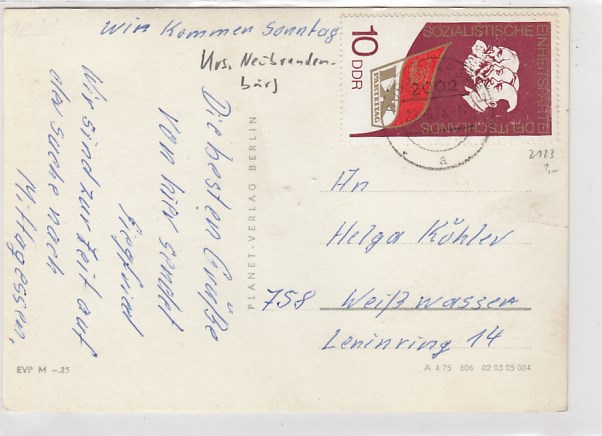 wir kommen Sonntag
Krs. Neubranden-
burg
Die besten Grüße
von hier sendet
Siegfried
Wir sind zur Zeit auf
der Suche nach
Mittagessen.
PLANET-VERLAG BERLIN
EVP M –.25
10
DDR
SOZIALISTISCHE
EINHEITSPARTEI
DEUTSCHLANDS
IX.
PARTEITAG
2002
a
2123
1,-
An
Helga Köhler
758 Weißwasser
Leninring 14
A 4 75 606 02 03 05 004